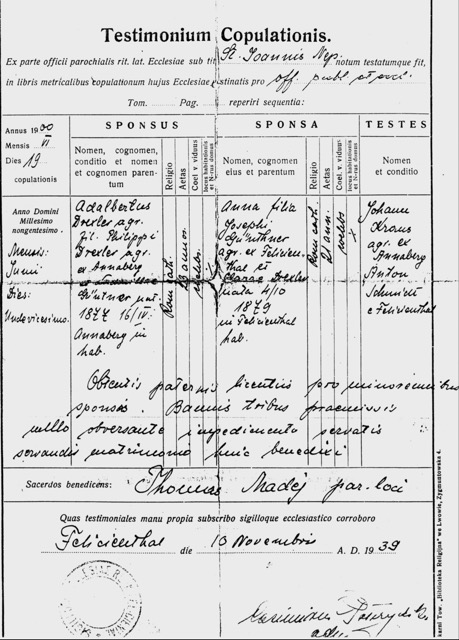 Testimonium Copulationis.
Ex parte officii parochialis rit. lat. Ecclesiae sub tit. St. Joannis Nep. notum testatumque fit,
in libris metricalibus copulationum hujus Ecclesiae destinatis pro off. publ. et
Tom. Pag. reperiri sequentia:
Annus 1900
Mensis VI
Dies 19
copulationis
SPONSUS
Nomen, cognomen,
conditio et nomen
et cognomen paren-
tum
Religio
Aetas
Coel. v. viduus
locus habitationis
et N-rus domus
SPONSA
Nomen, cognomen
eius et parentum
Religio
Aetas
Coel. v. vidua
locus habitationis
et N-rus domus
TESTES
Nomen
et conditio
Anno Domini
Millesimo
nongentesimo
Mensis:
Junii
Dies:
Undevicesimo
Adalbertus
Drexler agr.
fil. Philippi
Drexler agr.
ex Annaberg
et
Güntner nat.
1877 16/IV.
Annaberg in
hab.
Rom. cath.
23 annor.
caelebs
Anna filia
Josephi
Günthner
agr. ex Felicien-
thal et
Drexler
nata 4/10
1879
in Felicienthal
hab.
Rom. cath.
21 ann.
caelebs
x
Johann
Kraus
agr. ex
Annaberg
Anton
Schmidt
e Felicienthal
Obtentis paternis licentiis pro minorennibus
sponsis. Bannis tribus praemissis
nullo obversante impedimento servatis
servandis matrimonio huic benedixi
Sacerdos benedicens: Thomas Madej par. loci
Quas testimoniales manu propia subscribo sigilloque ecclesiastico corroboro
Felicienthal die 10 Novembris A. D. 1939
Kazimierz
adm.
karni Tow. „Biblioteka Religijna" we Lwowie, Zygmuntowska 4.